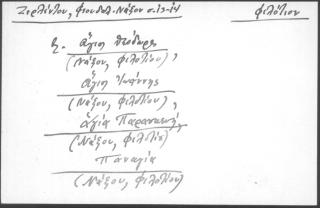 Ζερλέντου, Φεουδαλ. Νάξου σ. 13-14 Φιλότιον
ξ. ἅγιος Θεόδωρος
(Νάξου, Φιλοτίου)
ἅγιος Ἰωάννης
(Νάξου, Φιλοτίου),
ἁγία Παρασκευή,
(Νάξου, Φιλοτίου)
Παναγία
(Νάξου, Φιλοτίου)